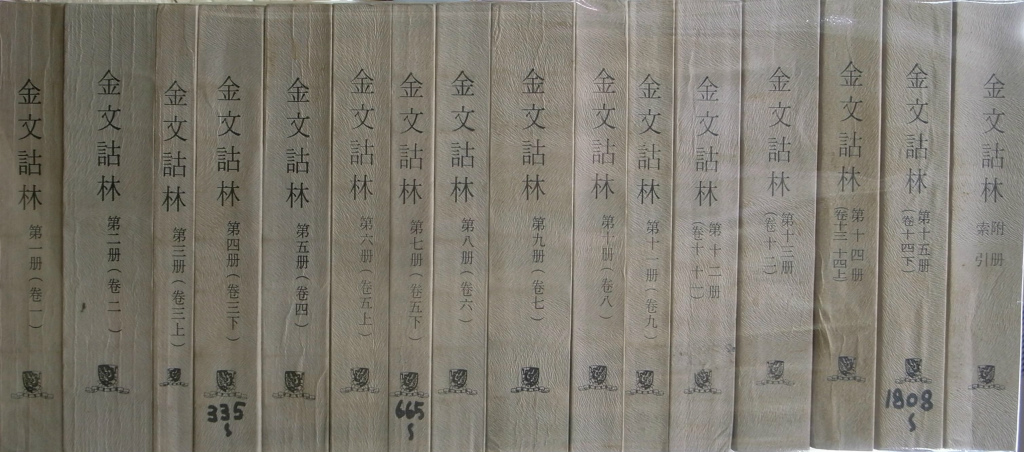 金文詁林
第一册(卷一)
金文詁林
第二册(卷二)
金文詁林
第三册(卷三上)
金文詁林
第四册(卷三下)
335
金文詁林
第五册(卷四)
金文詁林
第六册(卷五上)
金文詁林
第七册(卷五下)
665
金文詁林
第八册(卷六)
金文詁林
第九册(卷七)
金文詁林
第十册(卷八)
金文詁林
第十一册(卷九)
金文詁林
第十二册
(卷十 十一)
金文詁林
第十三册
(卷十二)
金文詁林
第十四册
(卷十三 十四上)
金文詁林
第十五册
(卷十四下)
1808
金文詁林
附册
索引